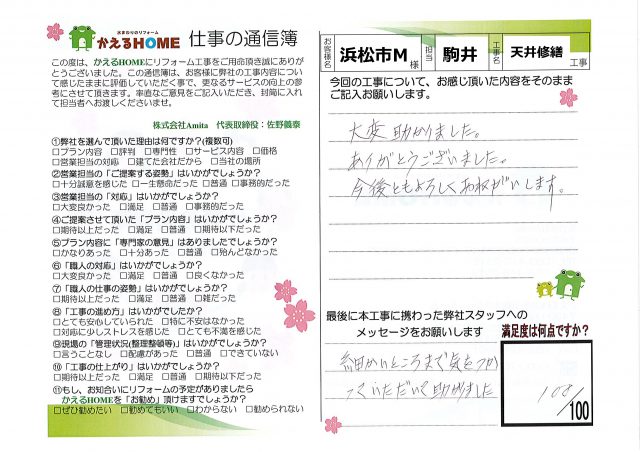 水まわりのリフォーム
かえるHOME
仕事の通信簿
この度は、かえるHOMEにリフォーム工事をご用命頂き誠にありが
とうございました。この通信簿は、お客様に弊社の工事内容につい
て感じたままに評価していただく事で、更なるサービスの向上の参
考にさせて頂きます。率直なご意見をご記入いただき、封筒に入れ
て担当者へお渡しくださいませ。
株式会社Amita 代表取締役：佐野義泰
①弊社を選んで頂いた理由は何ですか?(複数可)
□プラン内容 □評判 □専門性 □サービス内容 □価格
□営業担当の対応 □建てた会社だから □当社の場所
②営業担当の「ご提案する姿勢」はいかがでしょうか?
□十分誠意を感じた □一生懸命だった □普通 □事務的だった
③営業担当の「対応」はいかがでしょうか?
□大変良かった □満足 □普通 □事務的だった
④ご提案させて頂いた「プラン内容」はいかがでしょうか?
□期待以上だった □満足 □普通 □期待以下だった
⑤プラン内容に「専門家の意見」はありましたでしょうか?
□かなりあった □十分あった □普通 □殆んどなかった
⑥「職人の対応」はいかがでしょうか?
□大変良かった □満足 □普通 □良くなかった
⑦「職人の仕事の姿勢」はいかがでしょうか?
□期待以上だった □満足 □普通 □雑だった
⑧「工事の進め方」はいかがでしたか?
□とても安心していられた □特に不安はなかった
□対応に少しストレスを感じた □とても不満を感じた
⑨現場の「管理状況(整理整頓等)」はいかがでしょうか?
□言うことなし □配慮があった □普通 □できていない
⑩「工事の仕上がり」はいかがでしょうか?
□期待以上だった □満足 □普通 □期待以下だった
⑪もし、お知合いにリフォームの予定がありましたら
かえるHOMEを「お勧め」頂けますでしょうか?
□ぜひ勧めたい □勧めてもいい □わからない □勧められない
お客様名 浜松市M様 担当 駒井 工事名 天井修繕 工事
今回の工事について、お感じ頂いた内容をそのまま
ご記入お願いします。
大変助かりました。
ありがとうございました。
今後ともよろしくおねがいします。
最後に本工事に携わった弊社スタッフへの
メッセージをお願いします
細かいところまで気をつか
っていただいて助かりました
満足度は何点ですか?
100/100